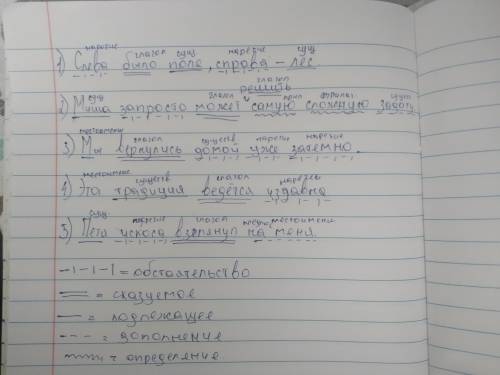 наречие глагол сущ наречие сущ
1) Слева было поле, справа - лес
глагол
решить
сущ глагол прил сущ
2) Миша запросто может ˅ самую сложную задачу
местоимени глагол существ наречи наречие
3) Мы вернулись домой уже затемно.
местоимение существ глагол наречие
4) Эта традиция ведётся издавна
сущ. наречие глагол предлог местоимени
5) Петя искоса взглянул на меня
-ı-ı-ı = обстоятельство
= сказуемое
= подлежащее
--- = дополнение
= определение